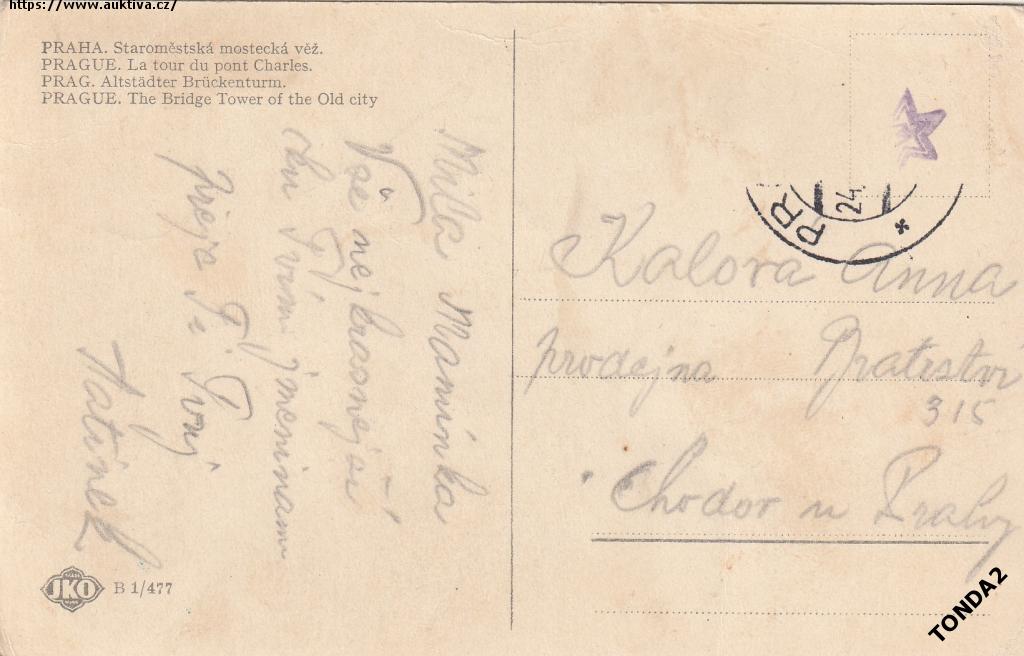 https://www.auktiva.cz/
PRAHA. Staroměstská mostecká věž.
PRAGUE. La tour du pont Charles.
PRAG. Altstädter Brückenturm.
PRAGUE. The Bridge Tower of the Old city
Milá Maminka
Vše nejkrasnejší
ku Tvím jmeninam
přeje Ti Tvoj
Tatinek
PR
24.
Kalova Anna
prodejna Bratrství
315
Chodov u Prahy
JKO B 1/477
TONDA2